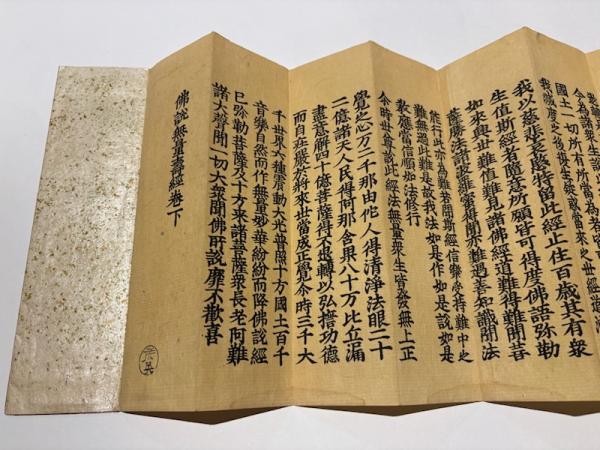 今為諸眾生說此
國土一切所有所當為者皆可
我滅度之後復生疑惑當來
我以慈悲哀愍特留此經止住百歲其有衆
生值斯經者隨意所願皆可得度佛語弥勒
如来興世難值難見諸佛經道難得難聞菩
薩勝法諸波羅蜜得聞亦難遇善知識聞法
能行此亦為難若聞斯經信樂受持難中之
難無過此難是故我法如是作如是說如是
教應當信順如法修行
尒時世尊說此經法無量衆生皆發無上正
覺之心万二千那由他人得清淨法眼二十
二億諸天人民得阿那含果八十万比丘漏
盡意解四十億菩薩得不退轉以弘誓功德
而自莊嚴於將来世當成正覺尒時三千大
千世界六種震動大光普照十方國土百千
音樂自然而作無量妙華紛紛而降佛說經
已弥勒菩薩及十方来諸菩薩衆長老阿難
諸大聲聞一切大衆聞佛所說靡不歡喜
佛說無量壽經卷下